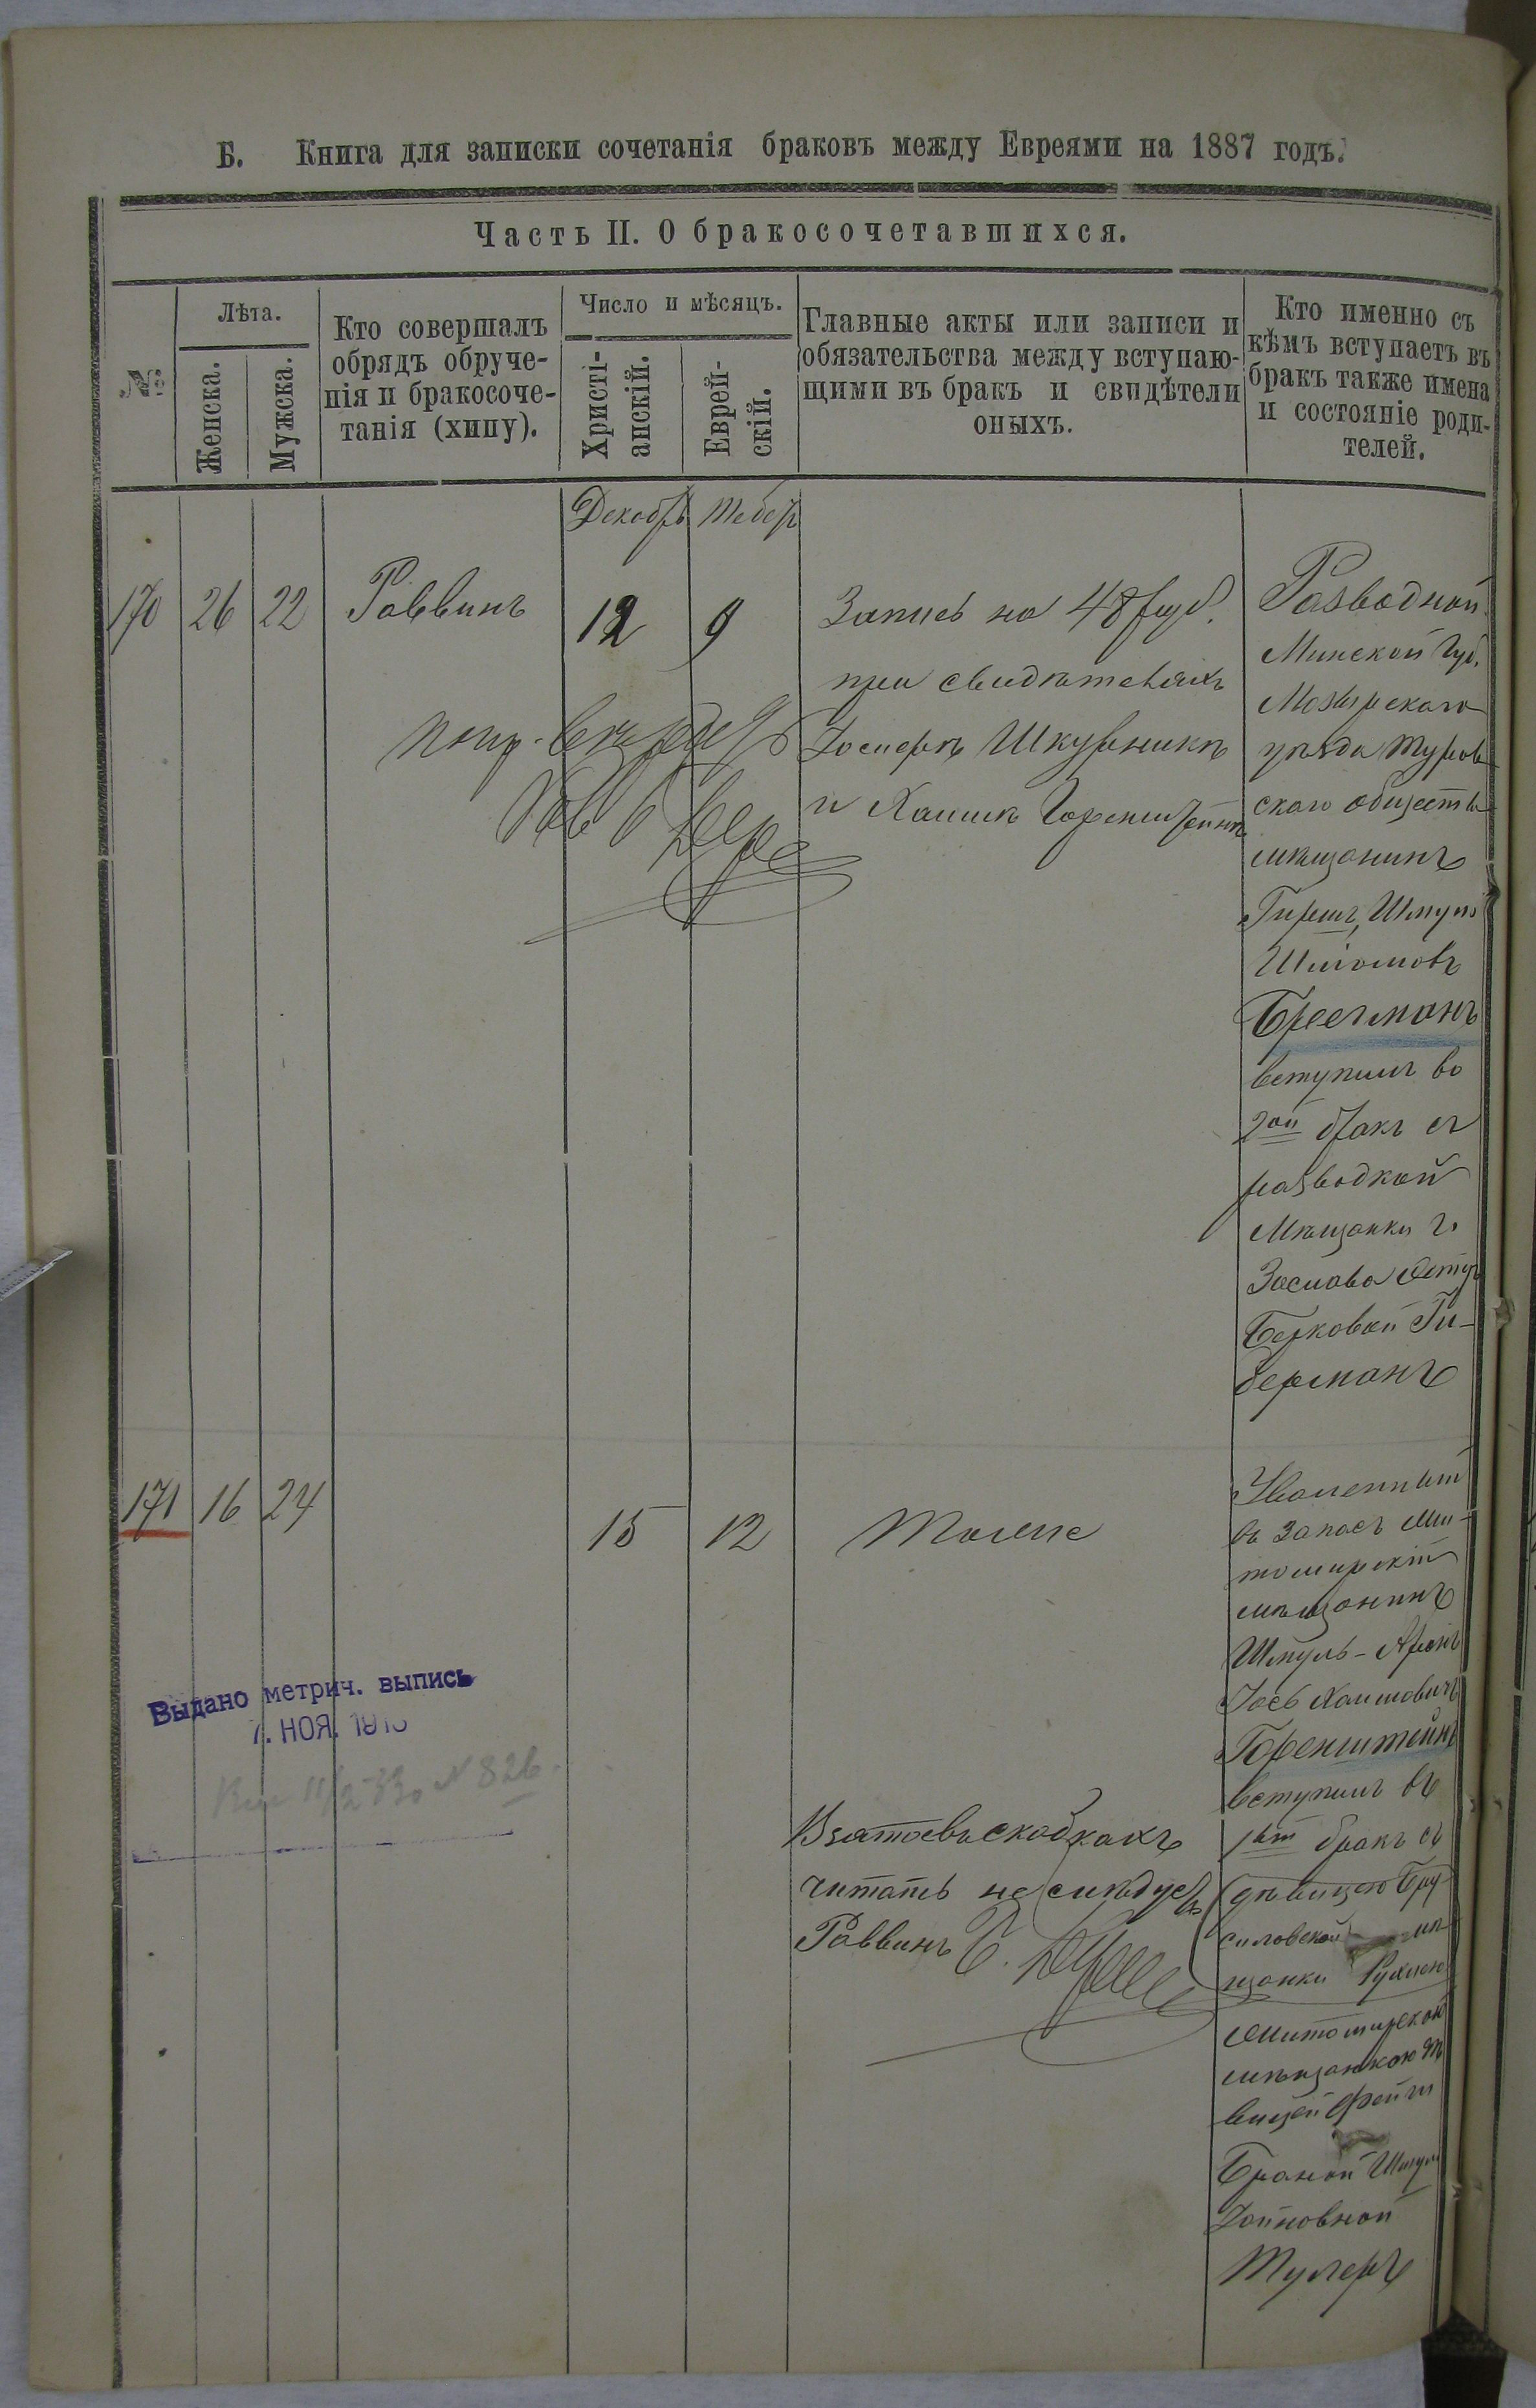 Б. Книга для записки сочетанія браковъ между Евреями на 1887 годъ.
Часть II. О бракосочетавшихся.
№
Лѣта.
Женска.
Мужска.
Кто совершалъ
обрядъ обруче-
нія и бракосоче-
танія (хипу).
Число и мѣсяцъ.
Христі-
анскій.
Еврей-
скій.
Главные акты или записи и
обязательства между вступаю-
щими въ бракъ и свидѣтели
оныхъ.
Кто именно съ
кѣмъ вступаетъ въ
бракъ также имена
и состояніе роди-
телей.
Декабрь
Тебетъ
170
26
22
Раввинъ
12
9
Запись на 48 руб.
при свидѣтеляхъ
Іосифѣ Шкурникѣ
и Хаимѣ Горенштейнѣ
Разводной
Минской Губ.
Мозырскаго
уѣзда Туров-
скаго общества
мѣщанинъ
Гиршъ, Шмуль
Шліомовъ
Брегманъ
вступилъ во
2ой бракъ съ
разводкой
мѣщанки г.
Заслава
Берковой Ги-
берманъ
171
16
24
15
12
Тоже
Уволенный
въ запасъ Жи-
томирскій
мѣщанинъ
Шмуль-Аронъ
Іось Хаимовичъ
Горенштейнъ
вступилъ въ
1ый бракъ съ
(дѣвицею Бру-
силовской мѣ-
щанки Рухлею
Житомирской
мѣщанкою дѣ-
вицей Фейги
Браной Шмуль
Зойновной
Тулеръ
Взятое въ скобкахъ
читать не слѣдуетъ
Раввинъ
Выдано метрич. выпись
7. НОЯ. 191
№ 826.